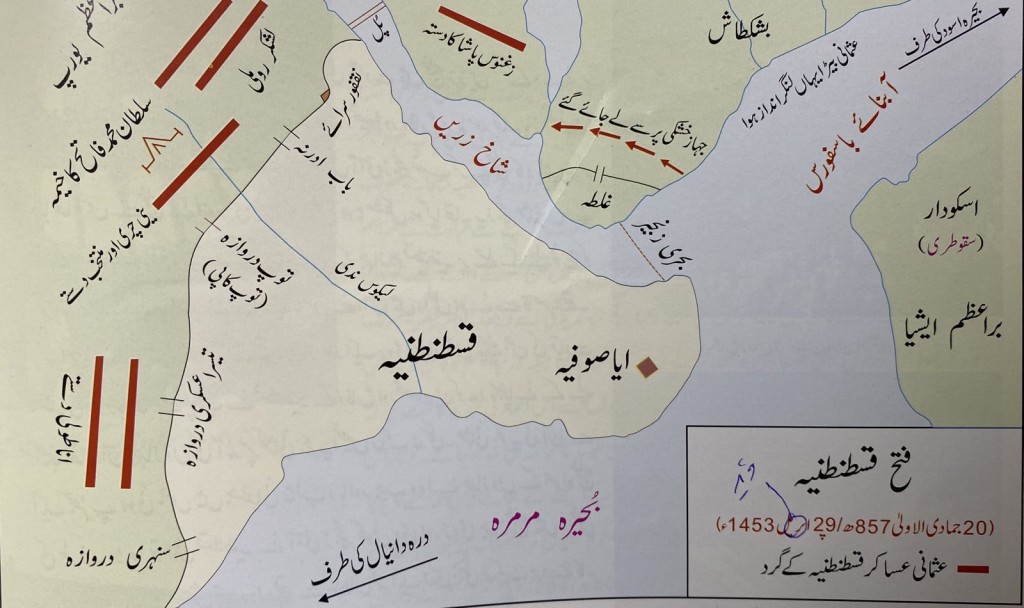 براعظم یورپ
لشکر روملی
پل
زغنوس پاشا کا دستہ
بشکطاش
بحیرہ اسود کی طرف
عثمانی بیڑا یہاں لنگر انداز ہوا
آبنائے باسفورس
جہاز خشکی پر سے لے جائے گئے
سلطان محمد فاتح کا خیمہ
نقفور سرائے
شاخ زریں
باب ادرنہ
غلطہ
بحری زنجیر
اسکودار
(سقوطری)
ینی چری اور منتخب دستے
توپ دروازہ
(توپ کاپی)
لیکوس ندی
براعظم ایشیا
قسطنطنیہ
ایاصوفیہ
تیسرا عسکری دروازہ
اناطولی دستے
بُحیرہ مرمرہ
سنہری دروازہ
درہ دانیال کی طرف
فتح قسطنطنیہ
(20 جمادی الاولیٰ 857ھ/29 اپریل 1453ء)
عثمانی عساکر قسطنطنیہ کے گرد